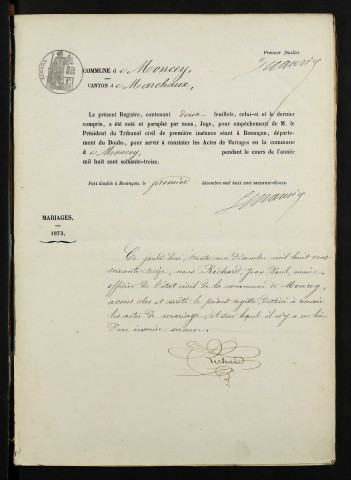 Premier feuillet
COMMUNE d e Moncey,
CANTON d e Marchaux.
Le présent Registre, contenant deux feuillets, celui-ci et le dernier
compris, a été coté et paraphé par nous, Juge, pour empêchement de M. le
Président du Tribunal civil de première instance séant à Besançon, départe-
ment du Doubs, pour servir à constater les Actes de Mariages en la commune
d e Moncey, pendant le cours de l'année
mil huit cent soixante-treize.
Fait double à Besançon, le premier décembre mil huit cent soixante-douze.
MARIAGES.
1873.
Ce jourd'hui, trente un Décembre mil huit cent
soixante treize, nous Richard Jean Paul, maire
officier de l'état civil de la commune de Moncey,
avons clos et arrêté le présent registre destiné à
les actes de mariage et sur lequel il n'y a eu lieu
d'en inscrire aucun.
Richard